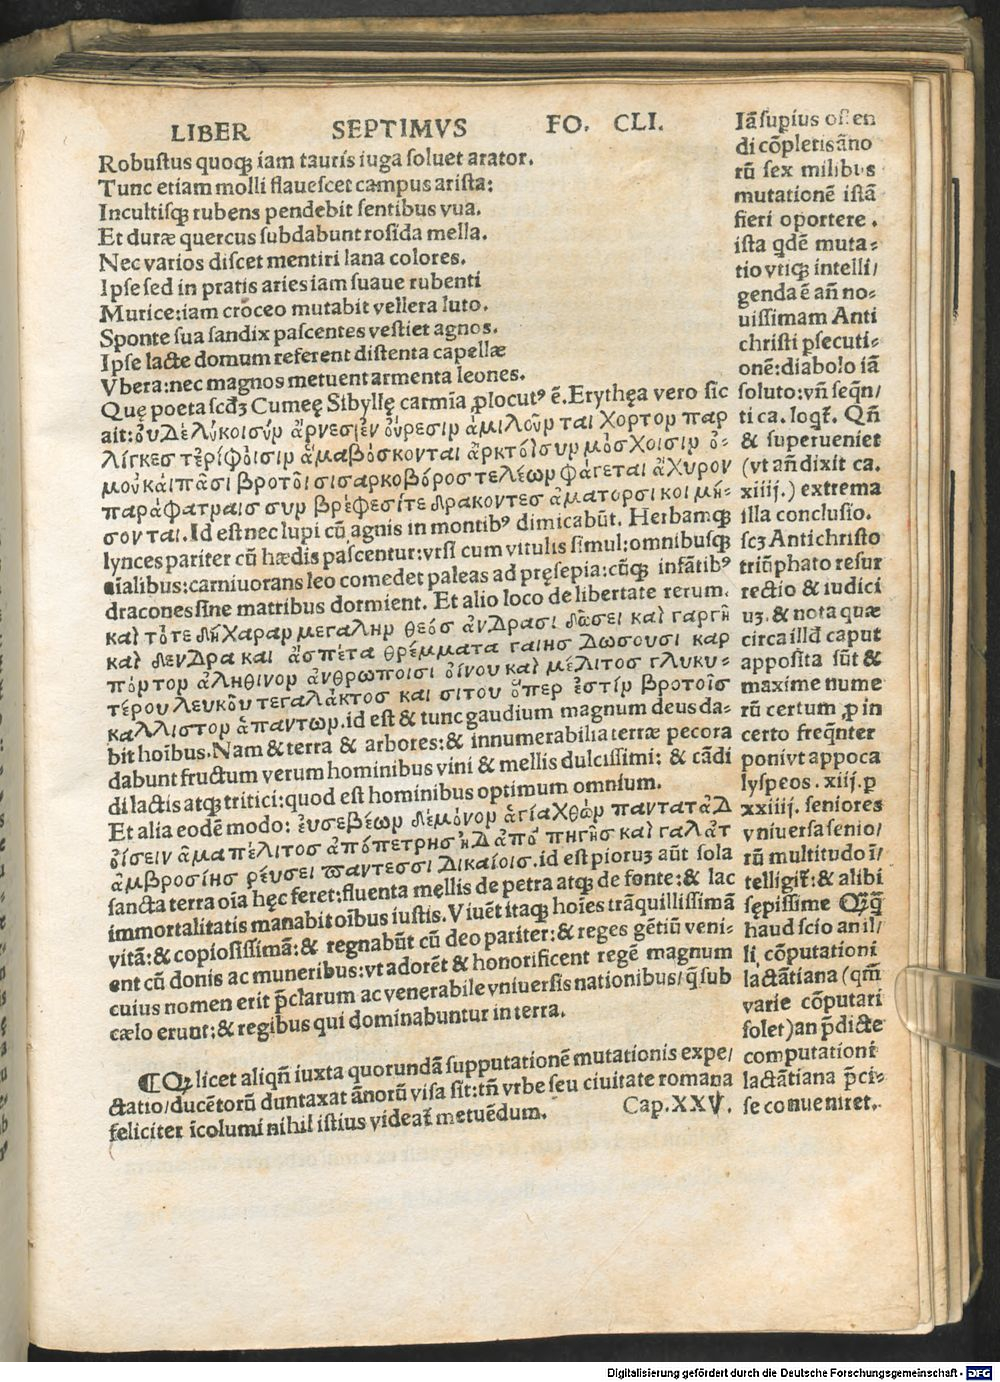 LIBER SEPTIMVS FO. CLI.
Robustus quoqꝫ iam tauris iuga soluet arator.
Tunc etiam molli flauescet campus arista:
Incultisqꝫ rubens pendebit sentibus vua.
Et duræ quercus subdabunt rosida mella.
Nec varios discet mentiri lana colores.
Ipse sed in pratis aries iam suaue rubenti
Murice: iam croceo mutabit vellera luto.
Sponte sua sandix pascentes vestiet agnos.
Ipse lacte domum referent distenta capellæ
Vbera: nec magnos metuent armenta leones.
Quę poeta scd̄ꝫ Cumeę Sibyllę carmīa ꝓlocutꝰ ē. Erythęa vero sic
ait: ὀυΔὲλύκοισὺρ ἄρνεσιἐν ὀύρεσιρ ἁμιλοῦρ ται χορτορ παρ
λίγκες τἐρίφοισιρ ἅμαβόσκονται ἀρκτόισυρ μόσχοισιρ ὁ-
μοῦκάιπᾶσι βροτοῖσισαρκοβόρος τελέωρ φάγεται ἄχυρον
παράφατμαις συρ βρέφεσίτε δρακοντες ἁματορσι κοι μή=
σονται. Id est nec lupi cū agnis in montibꝰ dimicabūt. Herbamqꝫ
lynces pariter cū hædis pascentur: vrsi cum vitulis simul: omnibusqꝫ
aīalibus: carniuorans leo comedet paleas ad pręsepia: cūqꝫ infātibꝰ
dracones sine matribus dormient. Et alio loco de libertate rerum.
καὶ τότε δὴχαραρ μεγαληρ θεός ἀνΔρασι δώσει καὶ γαργῆ
καὶ δενΔρα και ἀσπέτα θρέμματα γαιης Δωσουσι καρ
πόρτορ ἀληθινορ ἀνθρωποισι ὀίνου καὶ μέλιτος γλυκυ-
τέρου λευκοῦ τεγαλάκτος και σιτου ὅπερ ἐστίρ βροτοῖς
καλλιστορ ἁπαντωρ. id est & tunc gaudium magnum deus da-
bit hoībus. Nam & terra & arbores: & innumerabilia terræ pecora
dabunt fructum verum hominibus vini & mellis dulcissimi: & cādi
di lactis atqꝫ tritici: quod est hominibus optimum omnium.
Et alia eodē modo: ἐυσεβέωρ δὲμόνορ ἁγίαχθὼρ πανταταΔ
ὀίσειν ἅμαπέλιτος ἀπόπετρης ἠΔ ἀπό πηγῆς καὶ γαλάτ
ἀμβροσίης ρέυσει παντεσσι Δικαίοις. id est pioruꝫ aūt sola
sancta terra oīa hęc feret: fluenta mellis de petra atqꝫ de fonte: & lac
immortalitatis manabit oībus iustis. Viuēt itaqꝫ hoīes trāquillissimā
vitā: & copiosissimā: & regnabūt cū deo pariter: & reges gētiū veni=
ent cū donis ac muneribus: vt adorēt & honorificent regē magnum
cuius nomen erit p̄clarum ac venerabile vniuersis nationibus/ q̄ sub
cælo erunt: & regibus qui dominabuntur in terra.
¶ Qꝫ licet aliqn̄ iuxta quorundā supputationē mutationis expe/
ctatio/ ducētorū duntaxat ānorū visa sit: tn̄ vrbe seu ciuitate romana
feliciter īcolumi nihil istius videat̄ metuēdum. Cap. XXV.
Iā supius osten
di cōpletis āno
rū sex milibus
mutationē istā
fieri oportere.
ista qdē muta=
tio vtiqꝫ intelli/
genda ē an̄ no=
uissimam Anti
christi ꝑsecuti=
onē: diabolo iā
soluto: vn̄ seqn̄/
ti ca. loqt̄. Qn̄
& superueniet
(vt an̄ dixit ca.
xiiij.) extrema
illa conclusio.
scꝫ Antichristo
triūphato resur
rectio & iudici
uꝫ. & nota quæ
circa illd̄ caput
apposita sūt &
maxime nume
rū certum ꝓ in
certo freqn̄ter
poniͭ vt appoca
lyspeos. xiij. ꝑ
xxiiij. seniores
vniuersa senio/
rū multitudo ī/
telligit̄: & alibi
sępissime Qꝫqꝫ
haud scio an il/
li cōputationi
lactātiana (qm̄
varie cōputari
solet) an p̄dicte
computationi
lactātiana p̄ci=
se conueniret.
Digitalisierung gefördert durch die Deutsche Forschungsgemeinschaft - DFG